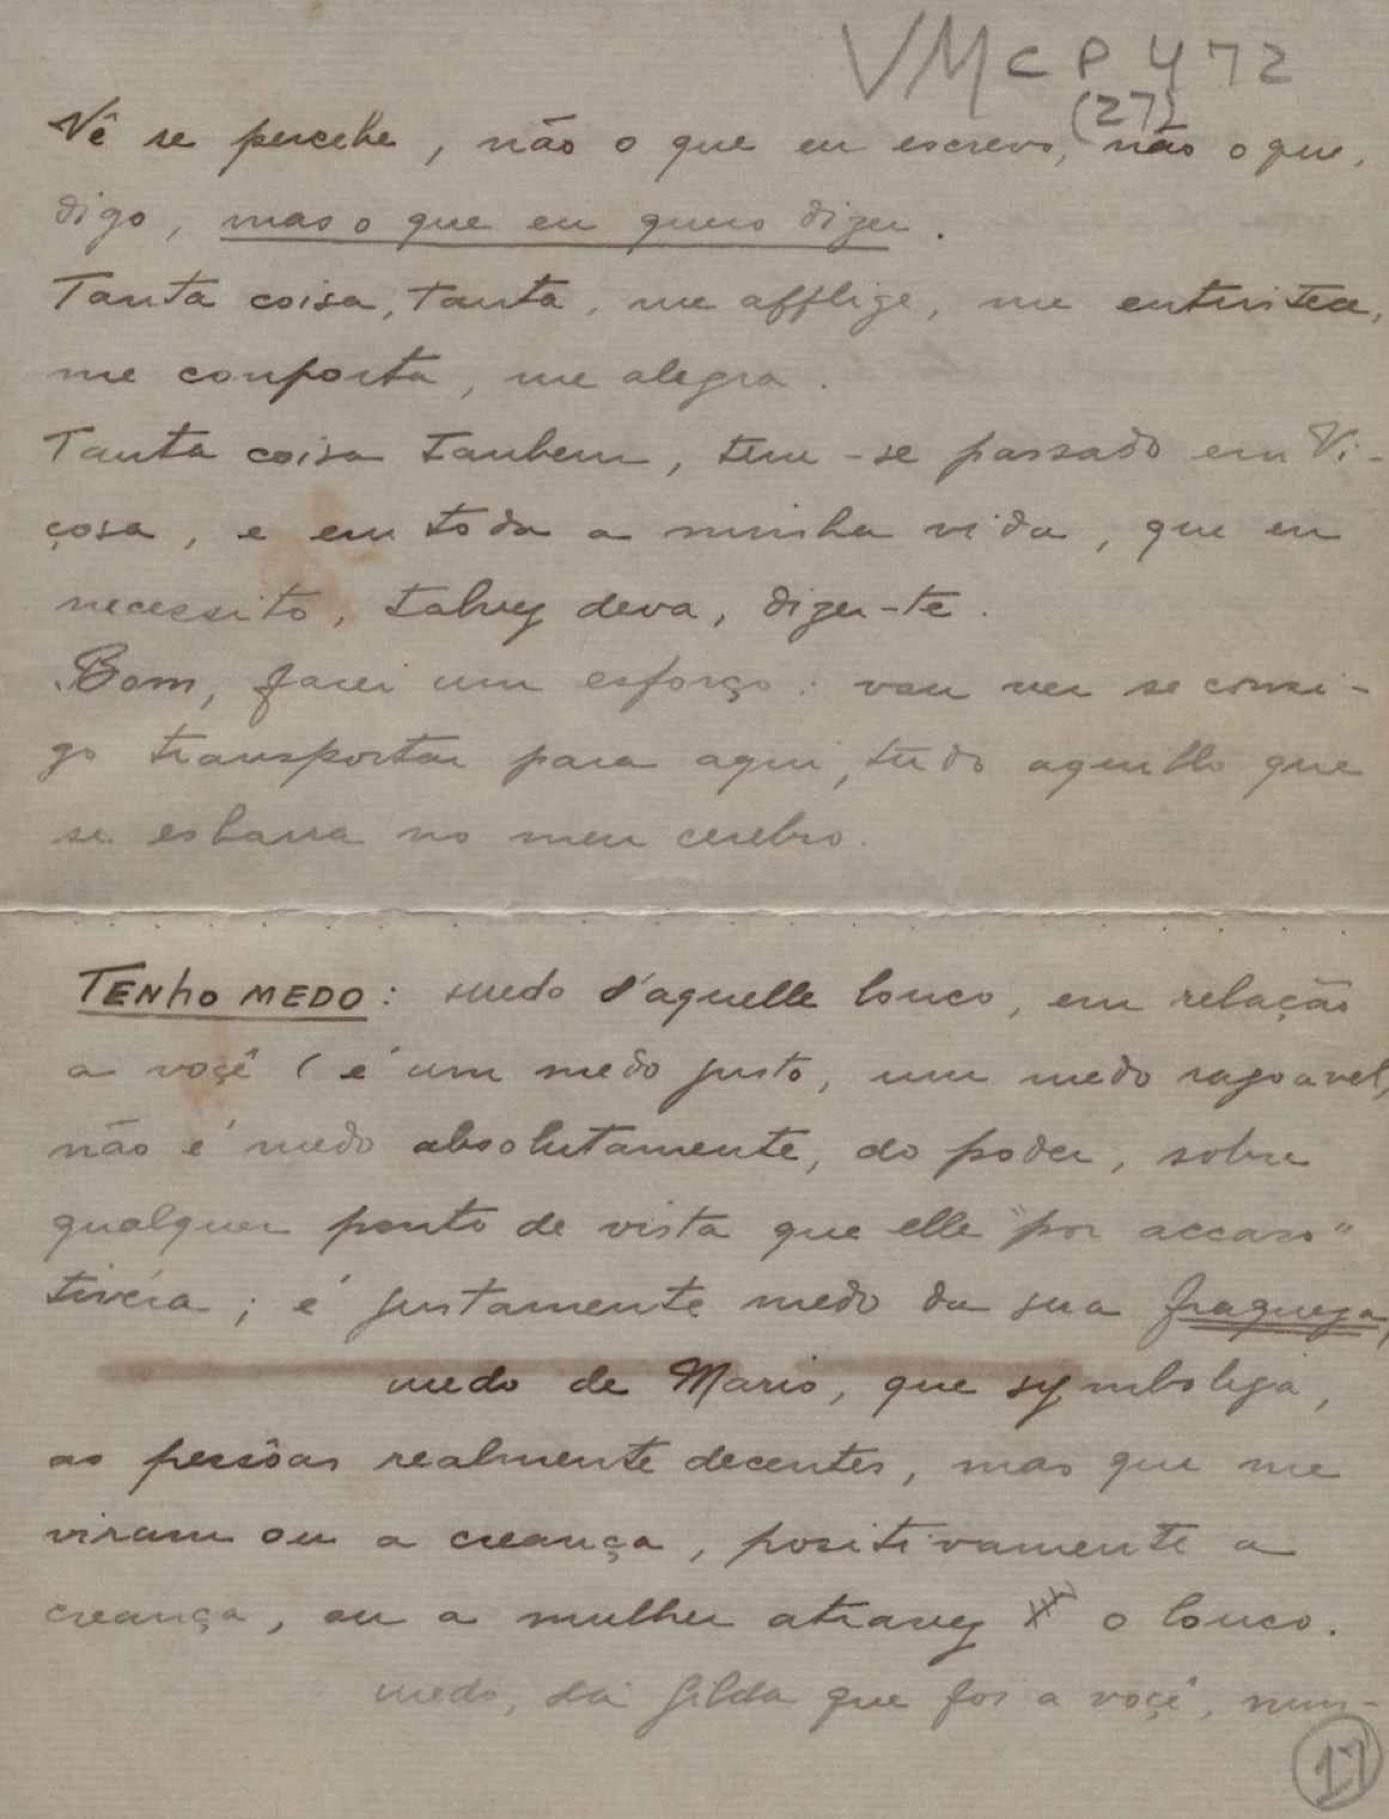 VMCP 472
(27)
Vê se percebe, não o que eu escrevo, não o que,
digo, mas o que eu quero dizer.
Tanta coisa, tanta, me afflige, me entristece,
me conforta, me alegra.
Tanta coisa tambem, tem-se passado em Vi-
çosa, e em toda a minha vida, que eu
necessito, talvez deva, dizer-te.
Bom, farei um esforço: vou ver se consi-
go transportar para aqui, tudo aquillo que
se esbarra no meu cerebro.
TENhO MEDO: medo d'aquelle louco, em relação
a voçê (é um medo justo, um medo razoavel,
não é medo absolutamente, do poder, sobre
qualquer ponto de vista que elle "por accaso"
tivéra; é justamente medo da sua fraqueza,
medo de Mario, que symboliza,
as pessôas realmente decentes, mas que me
viram ou a creança, positivamente a
creança, ou a mulher atravez o louco.
medo, da Gilda que foi a voçê, num-
17